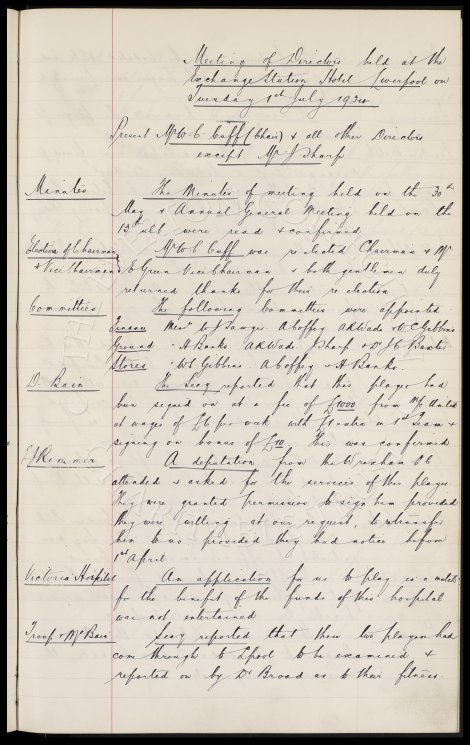 Meeting of Directors held at the
Exchange Station Hotel Liverpool on
Tuesday 1st July 1924
Present Mr W C Cuff (Chair) & all other Directors
except Mr J Sharp
Minutes The Minutes of meeting held on the 30th
May & Annual General Meeting held on the
13th ult were read & confirmed
Election of Chairman Mr W C Cuff was re elected Chairman & Mr
& Vice Chairman E Green Vice Chairman & both gentlemen duly
returned thanks for their re election
Committees The following Committees were appointed
Finance Messrs W J Sawyer A Coffey A R Wade & W C Gibbins
Ground " H Banks A R Wade J Sharp & Dr J C Baxter
Stores " W C Gibbins A Coffey & H Banks
D. Bain The Secy reported that this player had
been signed on at a fee of £1000 from M/c United
at wages of £6 per week with £1 extra in 1st Team &
signing on bonus of £10. This was confirmed
E J Rimmer A deputation from the Wrexham C
attended & asked for the services of this player
They were granted permission to sign him provided
they were willing at our request, to retransfer
him to us provided they had notice before
1st April
Victoria Hospital An application for us to play in a match
for the benefit of the funds of this hospital
was not entertained
Troup & McBain Secy reported that these two players had
come through to L'pool to be examined &
reported on by Dr Broad as to their fitness.